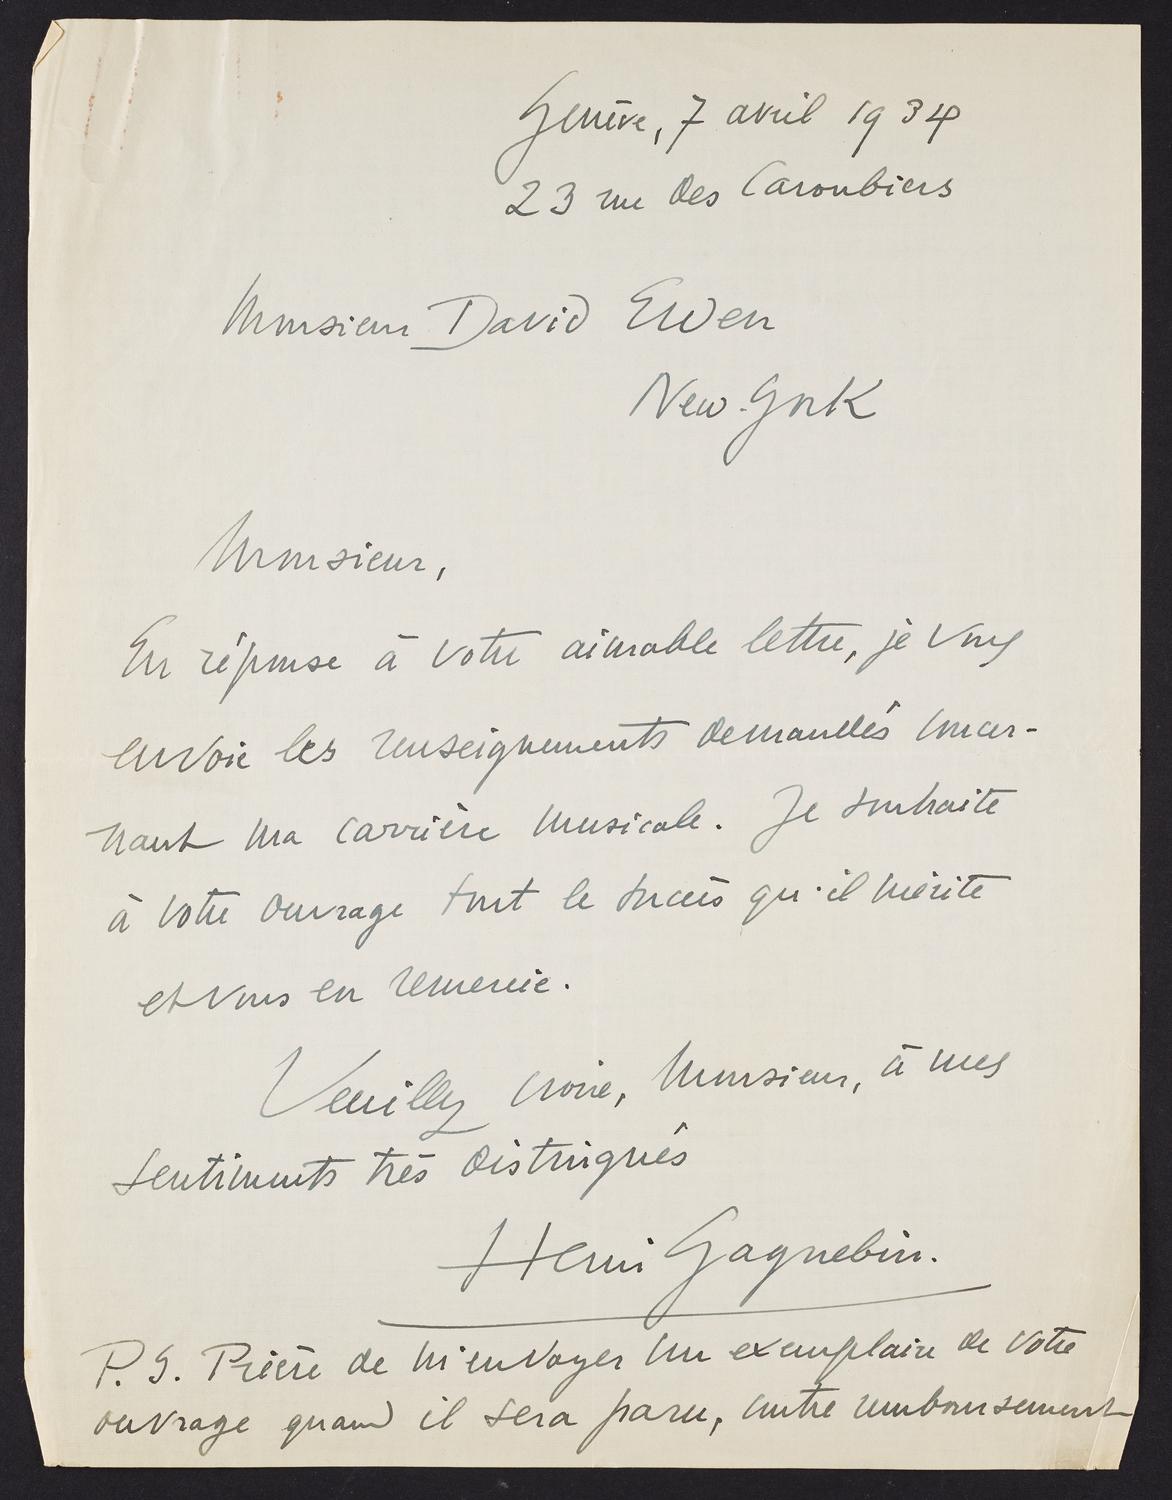 Genève, 7 avril 1934
23 rue des Caroubiers
Monsieur David Ewen
New-York
Monsieur,
En réponse à votre aimable lettre, je vous
envoie les renseignements demandés concer-
nant ma carrière musicale. Je souhaite
à votre ouvrage tout le succès qu'il mérite
et vous en remercie.
Veuillez croire, Monsieur, à mes
sentiments très distingués
Henri Gagnebin.
P.S. Prière de m'envoyer un exemplaire de votre
ouvrage quand il sera paru, contre remboursement